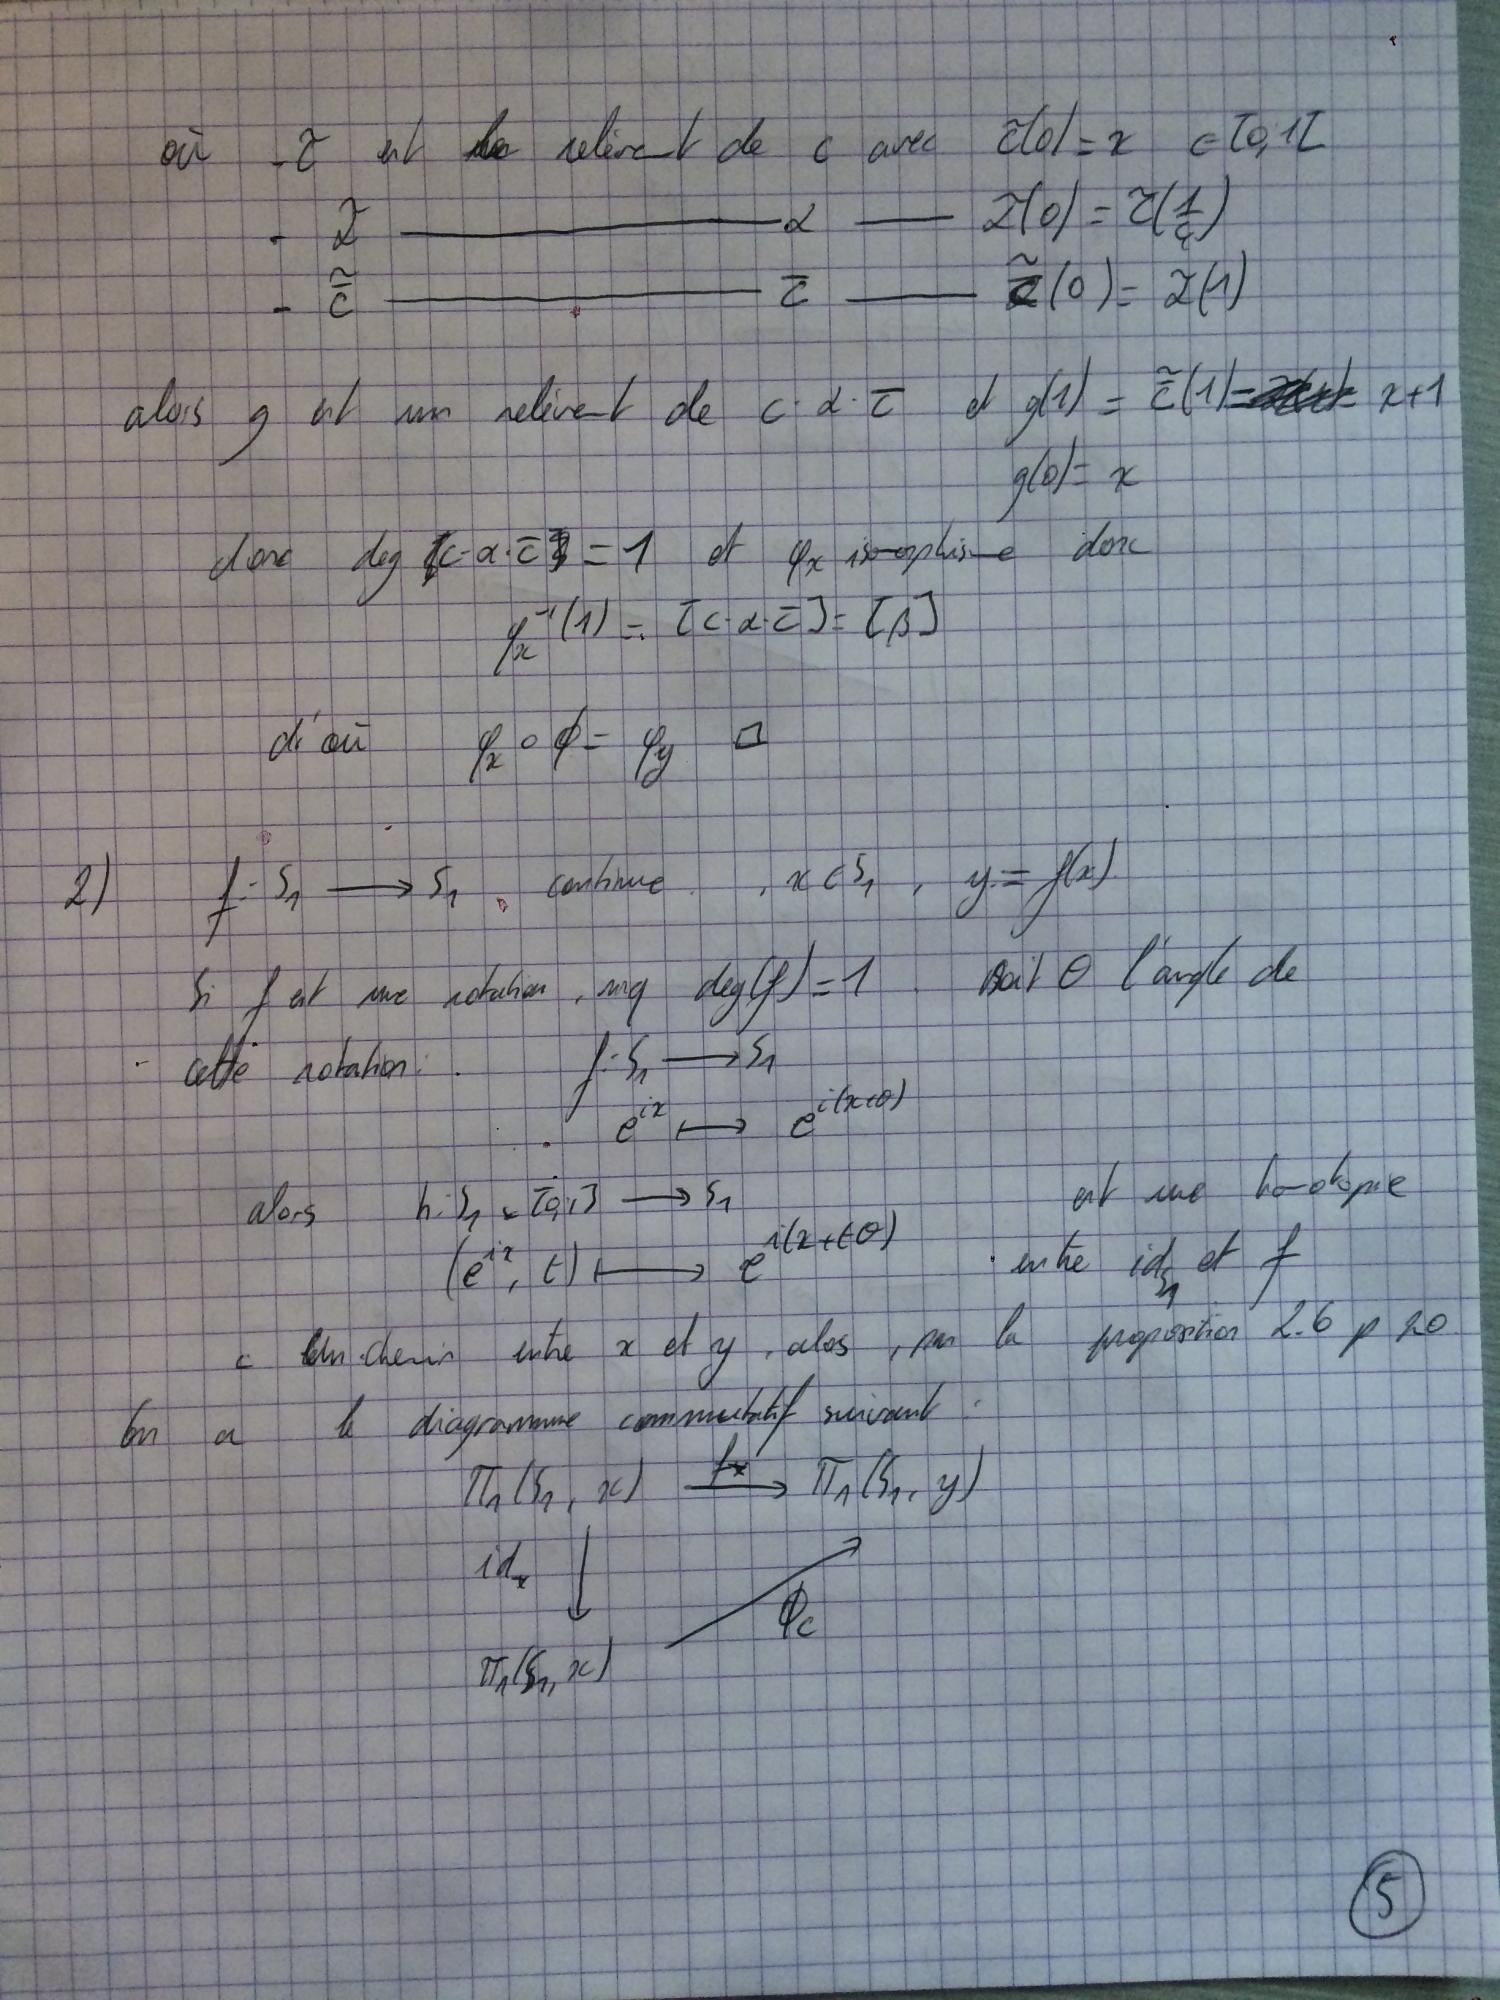 où - c̃ est le relèvent de c avec c̃(0) = x ∈ [0,1[
- α̃ ———— α —— α̃(0) = c̃(1)
- c̄̃ ———— c̄ —— c̄̃(0) = α̃(1)
alors g est un relèvent de c·α·c̄ et g(1) = c̄̃(1) = x+1
g(0) = x
donc deg [c·α·c̄] = 1 et φ_x isomorphisme donc
φ_x⁻¹(1) = [c·α·c̄] = [β]
d'où φ_x ∘ ϕ = φ_y □
2) f: S₁ → S₁ continue, x ∈ S₁, y = f(x)
Si f est une rotation, mq deg(f) = 1. Soit θ l'angle de
cette rotation: f: S₁ → S₁
e^{ix} ↦ e^{i(x+θ)}
alors h: S₁ × [0,1] → S₁ est une homotopie
(e^{ix}, t) ↦ e^{i(x+tθ)} entre id_{S₁} et f
c un chemin entre x et y, alos, par la proposition 2.6 p 20
on a le diagramme commutatif suivant :
π₁(S₁, x) → f_* π₁(S₁, y)
id_* ↓ ↗ ϕ_c
π₁(S₁, x)
5